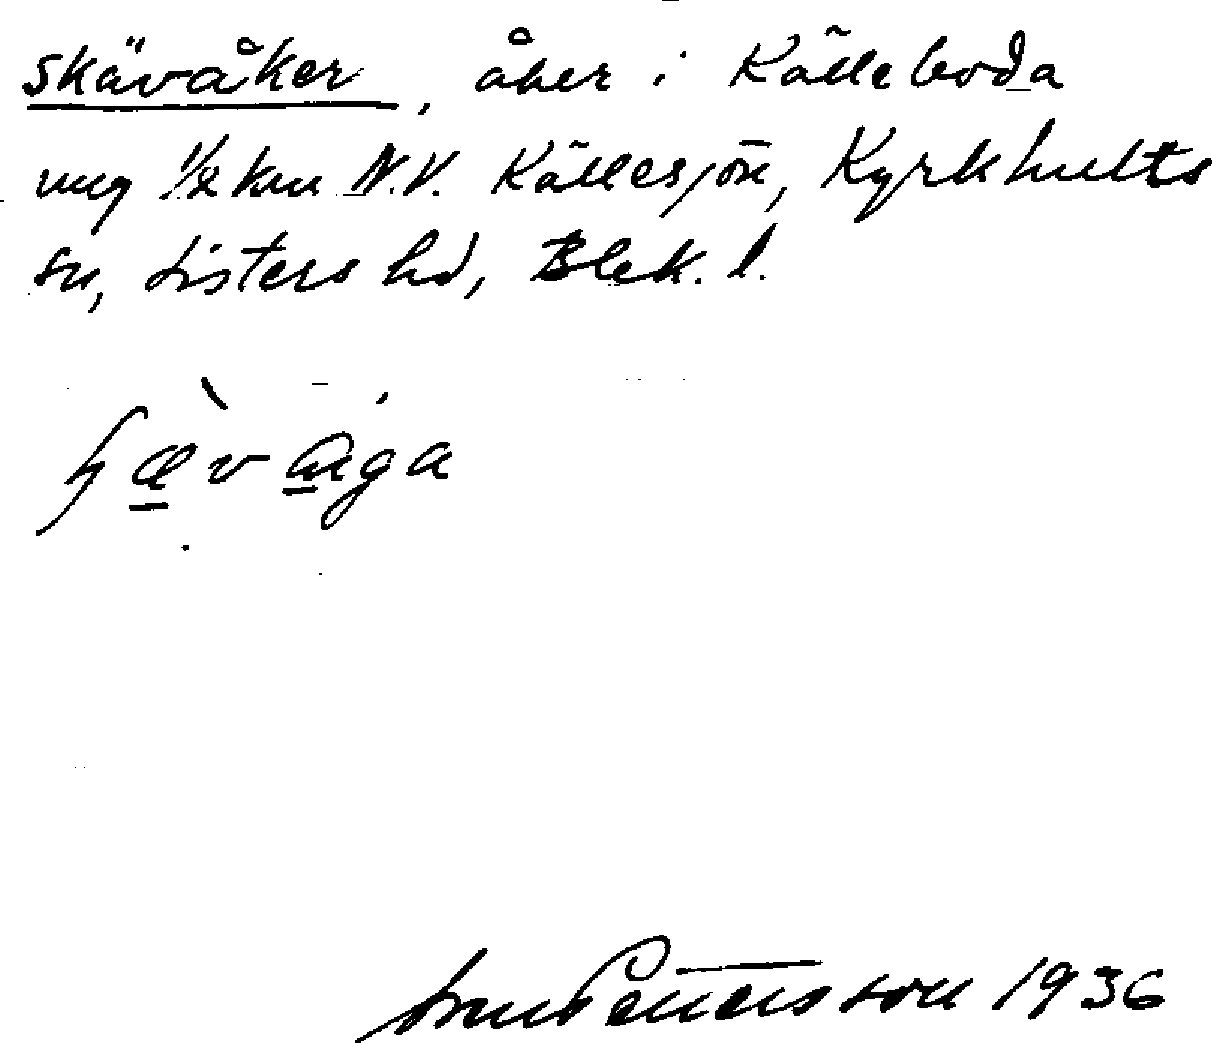 Skävåker, åker i Källeboda
ung 1/2 km N.V. Källesjön, Kyrkhults
sn, Listers hd, Blek. l.
Pettersson 1936